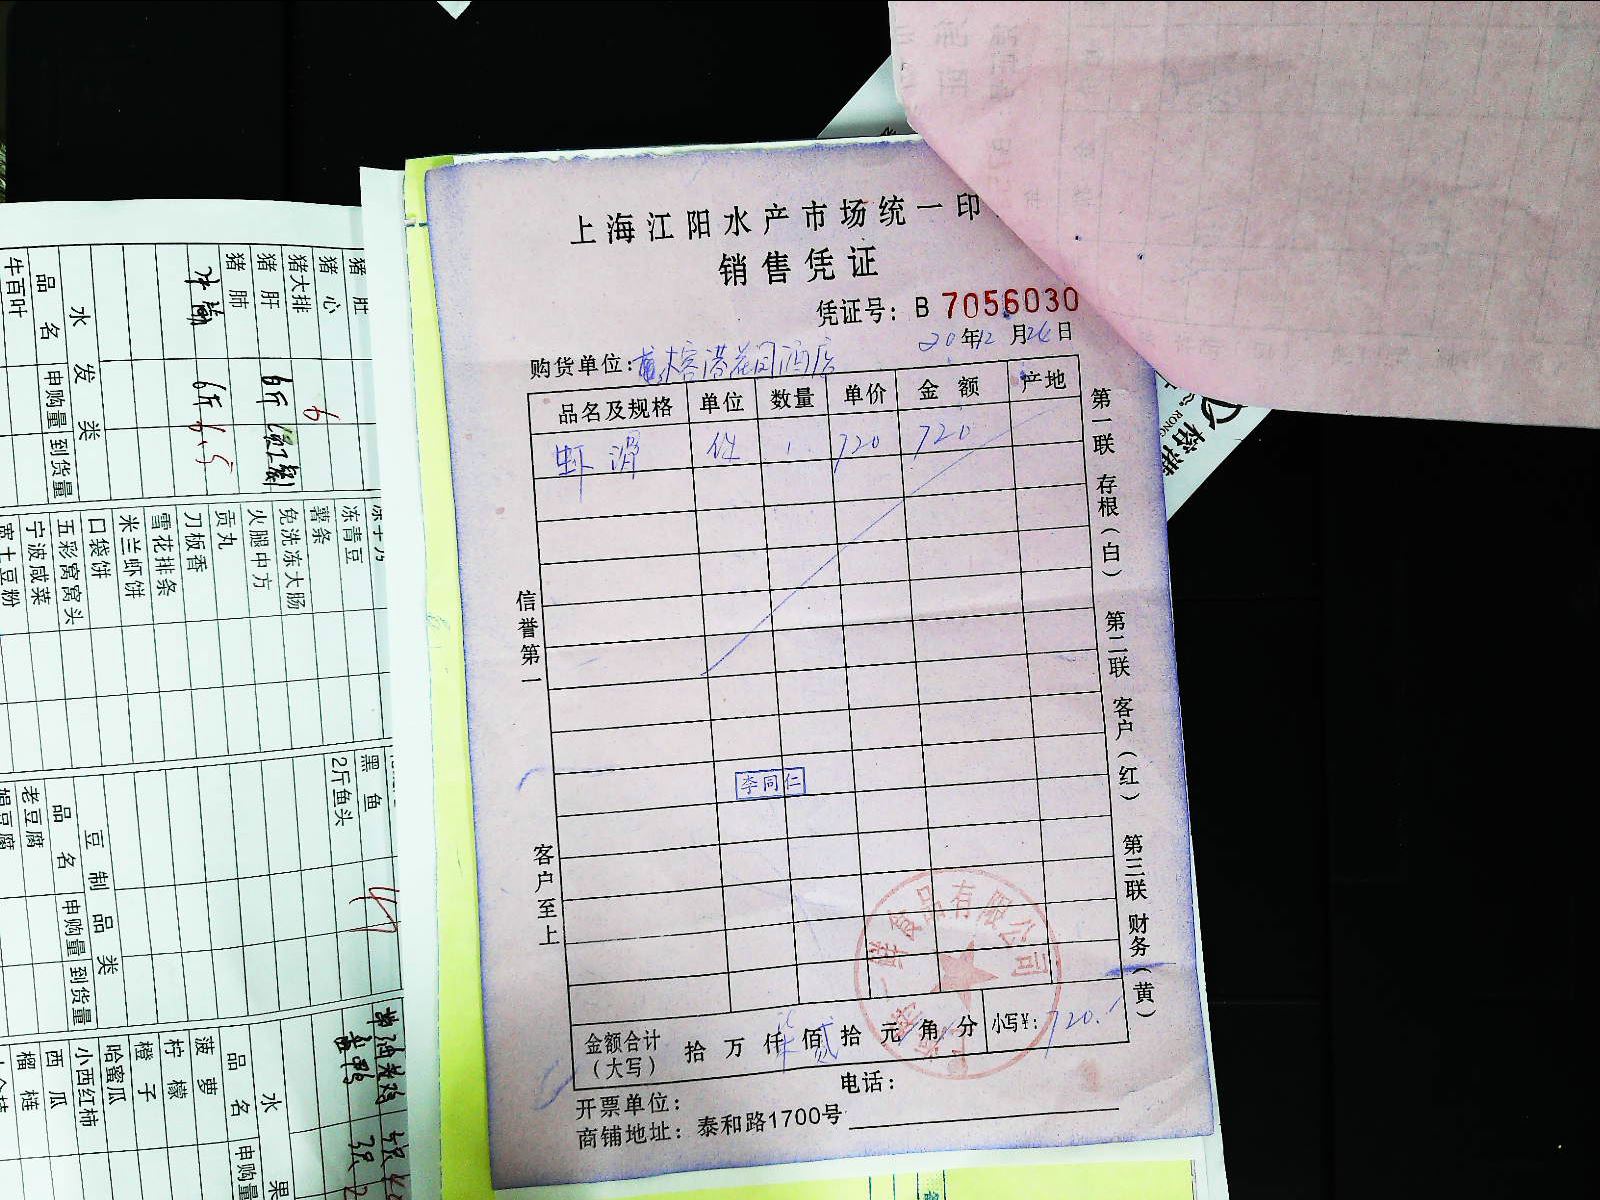 上海江阳水产市场统一印
销售凭证
凭证号：B 7056030
20年12月26日
购货单位：榕港花园酒店
品名及规格 单位 数量 单价 金额 产地
虾滑 件 1 720 720
信誉第一
客户至上
第一联 存根（白） 第二联 客户（红） 第三联 财务（黄）
李同仁
鲜食品有限公司
金额合计（大写） 拾 万 仟 柒 佰 贰 拾 元 角 分 小写¥：720.
电话：
开票单位：
商铺地址：泰和路1700号
猪肚
猪心 6
猪大排
猪肝 6斤
猪肺
牛 6斤 6.5
水发类
品名 申购量 到货量
牛百叶
冻青豆
薯条
免洗冻大肠
火腿中方
贡丸
刀板香
雪花排条
米兰虾饼
口袋饼
五彩窝窝头
宁波咸菜
宽土豆粉
黑鱼
2斤鱼头
豆制品类
品名 申购量 到货量
老豆腐
绢豆腐
水果
品名 申购量
菠萝
柠檬
橙子
哈蜜瓜
小西红柿
西瓜
榴梿
榕港
RONG